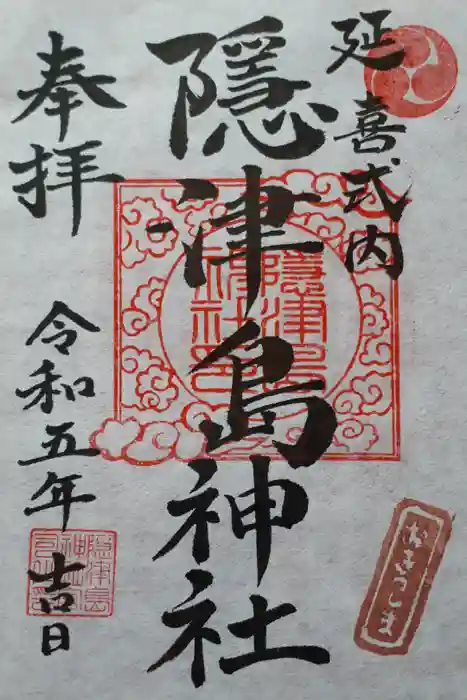 延喜式内
隠津島神社
奉拝
令和五年 吉日
隠津島神社
おきつしま